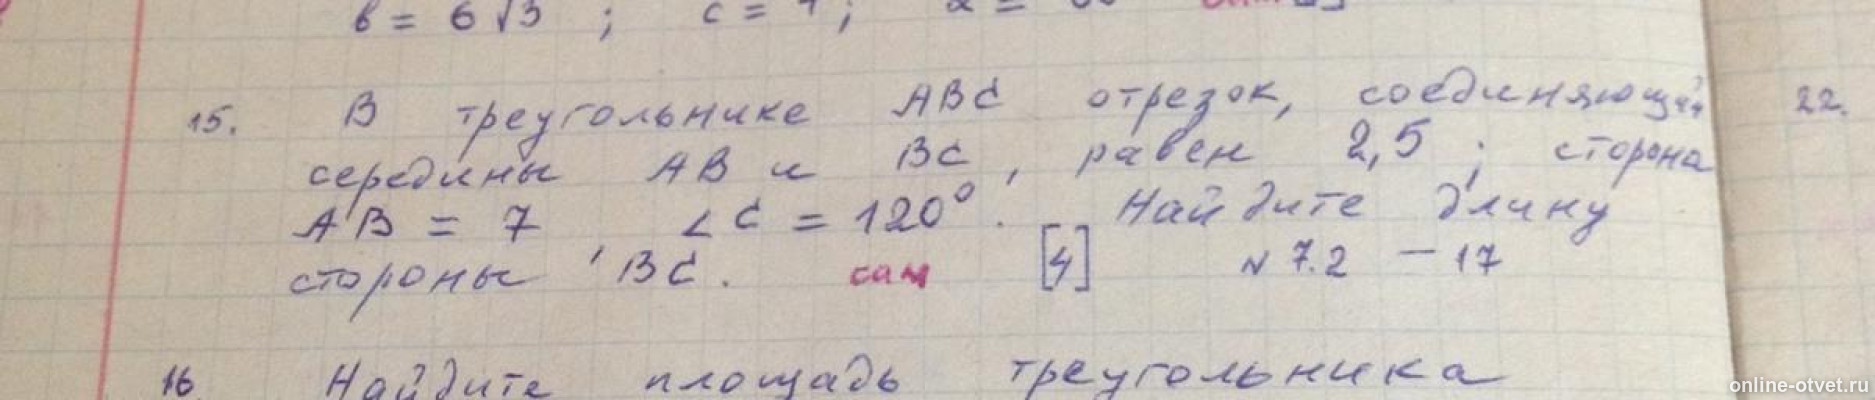 в = 6√3 ; c =
15. В треугольнике ABC отрезок, соединяющий
середины AB и BC, равен 2,5 ; сторона
AB = 7, ∠C = 120°. Найдите длину
стороны BC. сам [4] № 7.2 – 17
16. Найдите площадь треугольника
22.
online-otvet.ru